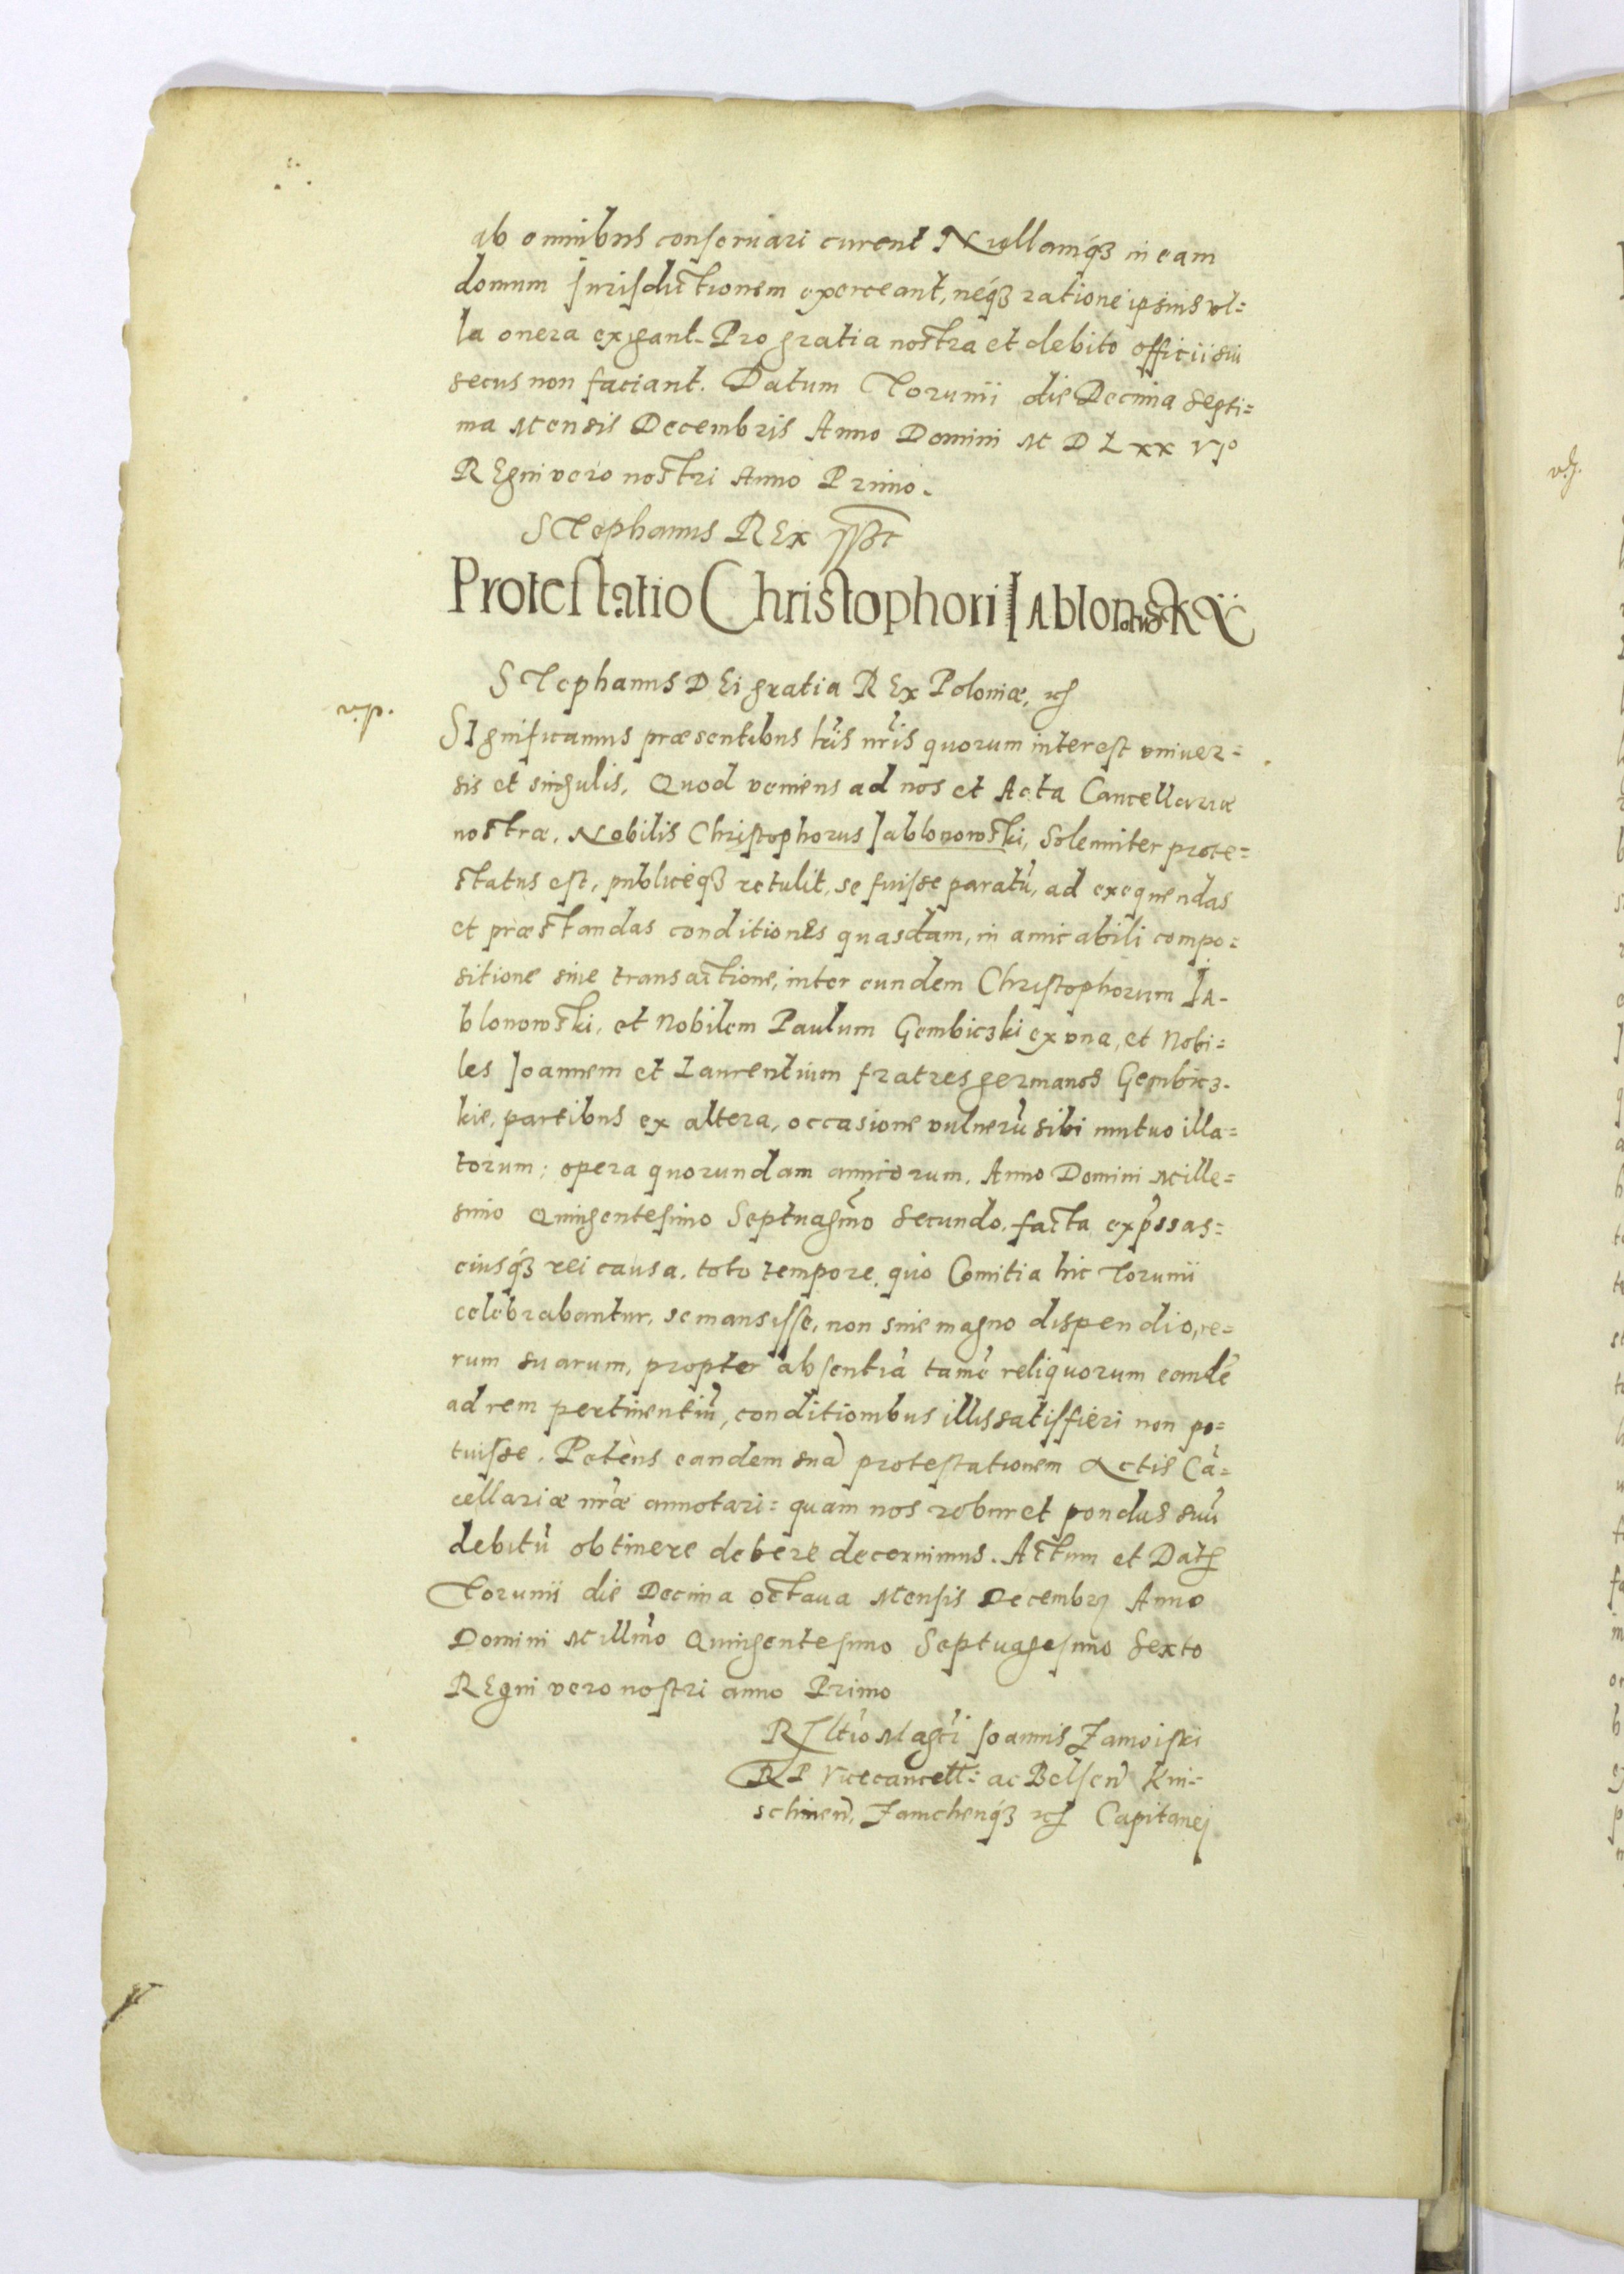 ab omnibus conseruari curent Nullamq́ꝫ in eam
domum Jurisdictionem exerceant, néq́ꝫ ratione ipsius vl=
la onera exigant. Pro gratia nostra et debito officii sui
secus non faciant. Datum Torunii die Decima Septi=
ma Mensis Decembris Anno Domini M D L xx VIº
REgni vero nostri Anno Primo.
STephanus REx sspt
Protestatio Christophori IAblonowskÿ
STephanus DEi gratia REx Poloniæ, ꝛc
v.p.
SIgnificamus præsentibus lr̃is nr̃is quorum interest vniuer=
sis et singulis. Quod veniens ad nos et Acta Cancellariæ
nostræ. Nobilis Christophorus Jablonowski, Solenniter prote=
status est, publiceq́ꝫ retulit, se fuisse paratũ, ad exequendas
et præstandas conditiones quasdam, in amicabili compo=
sitione siue transactione, inter eundem Christophorum IA-
blonowski, et Nobilem Paulum Gembiczki ex vna, et Nobi=
les Joannem et Laurentium fratres germanos Gembicz-
kie, partibus ex altera, occasione vulnerũ sibi mutuo illa=
torum; opera quorundam amicorum. Anno Domini Mille=
simo Quingentesimo Septuagm̃o Secundo. facta exp̃ssas=
eiusq́ꝫ rei causa. toto tempore, quo Comitia hic Torunii
celebrabantur, se mansisse, non sine magno dispendio, re=
rum suarum, propter absentiã tamẽ reliquorum eandẽ
ad rem pertinentiũ, conditionibus illis satisfieri non po=
tuisse. Petẽns eandem suã protestationem Actis Cã=
cellariæ nr̃æ annotari= quam nos robur et pondus suũ
debitũ obtinere debere decernimus. Actum et Datꝭ
Torunii die Decima octaua Mensis Decembrꝭ Anno
Domini Millm̃o Quingentesimo Septuagesimo Sexto
REgni vero nostri anno Primo
Rltio Magci Joannis Zamoiski
RP Vicecancell: ac Belsen̄ Kni=
schinen̄, Zamchenq́ꝫ ꝛc Capitanej